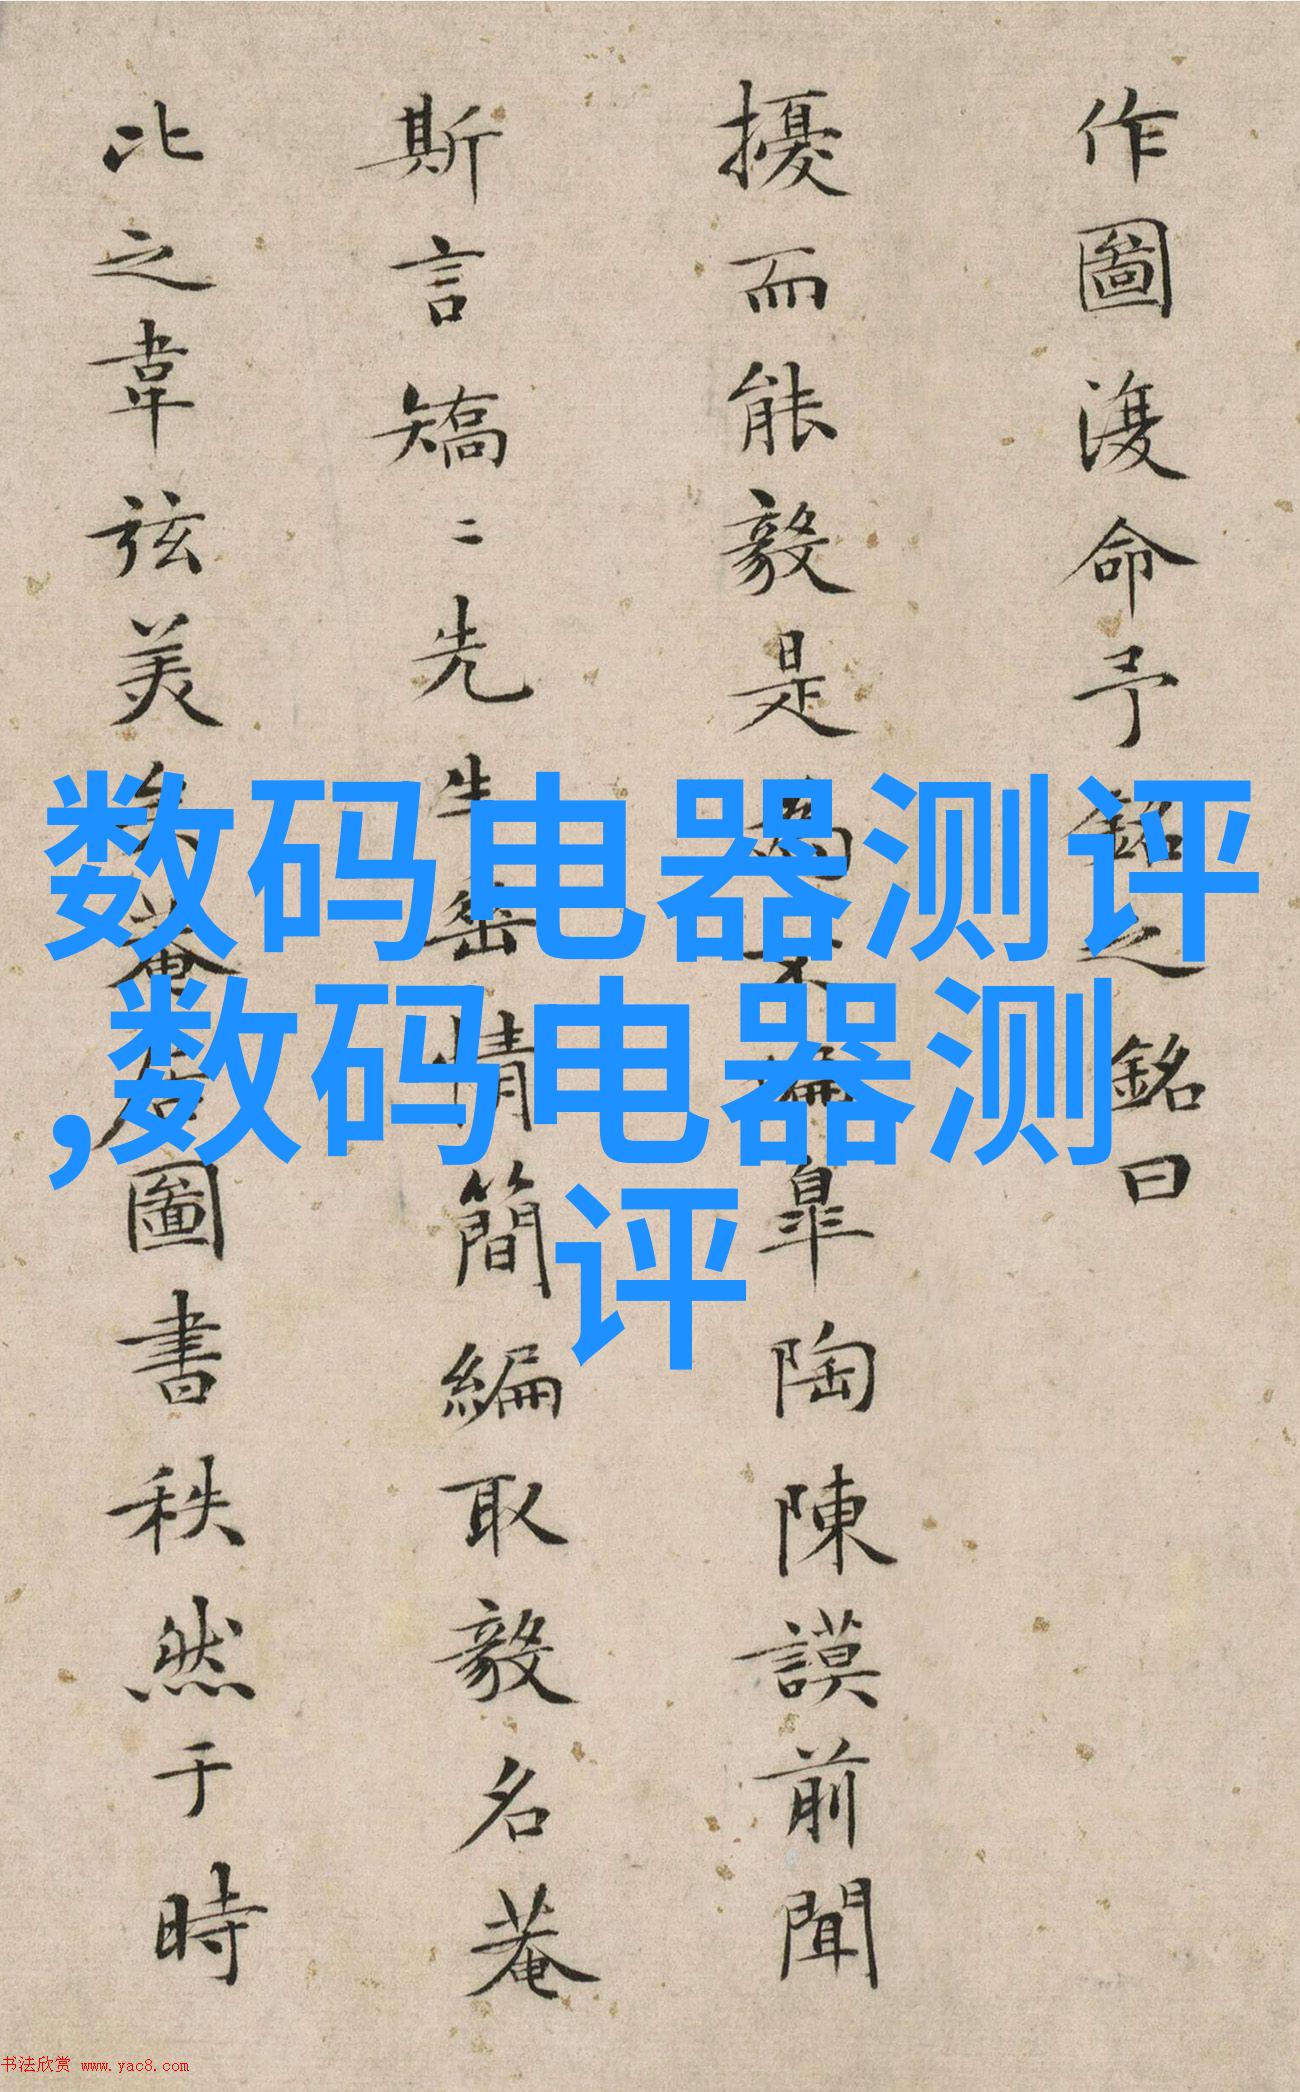 作圖復命予銘之銘曰
擾而能毅是為不偏皐陶陳謨前聞
斯言矯二先生岳情簡編取毅名菴
比之韋弦美矣菴居圖書秩然于時
数码电器测评
,数码电器测
评
书法欣赏 www.yac8.com